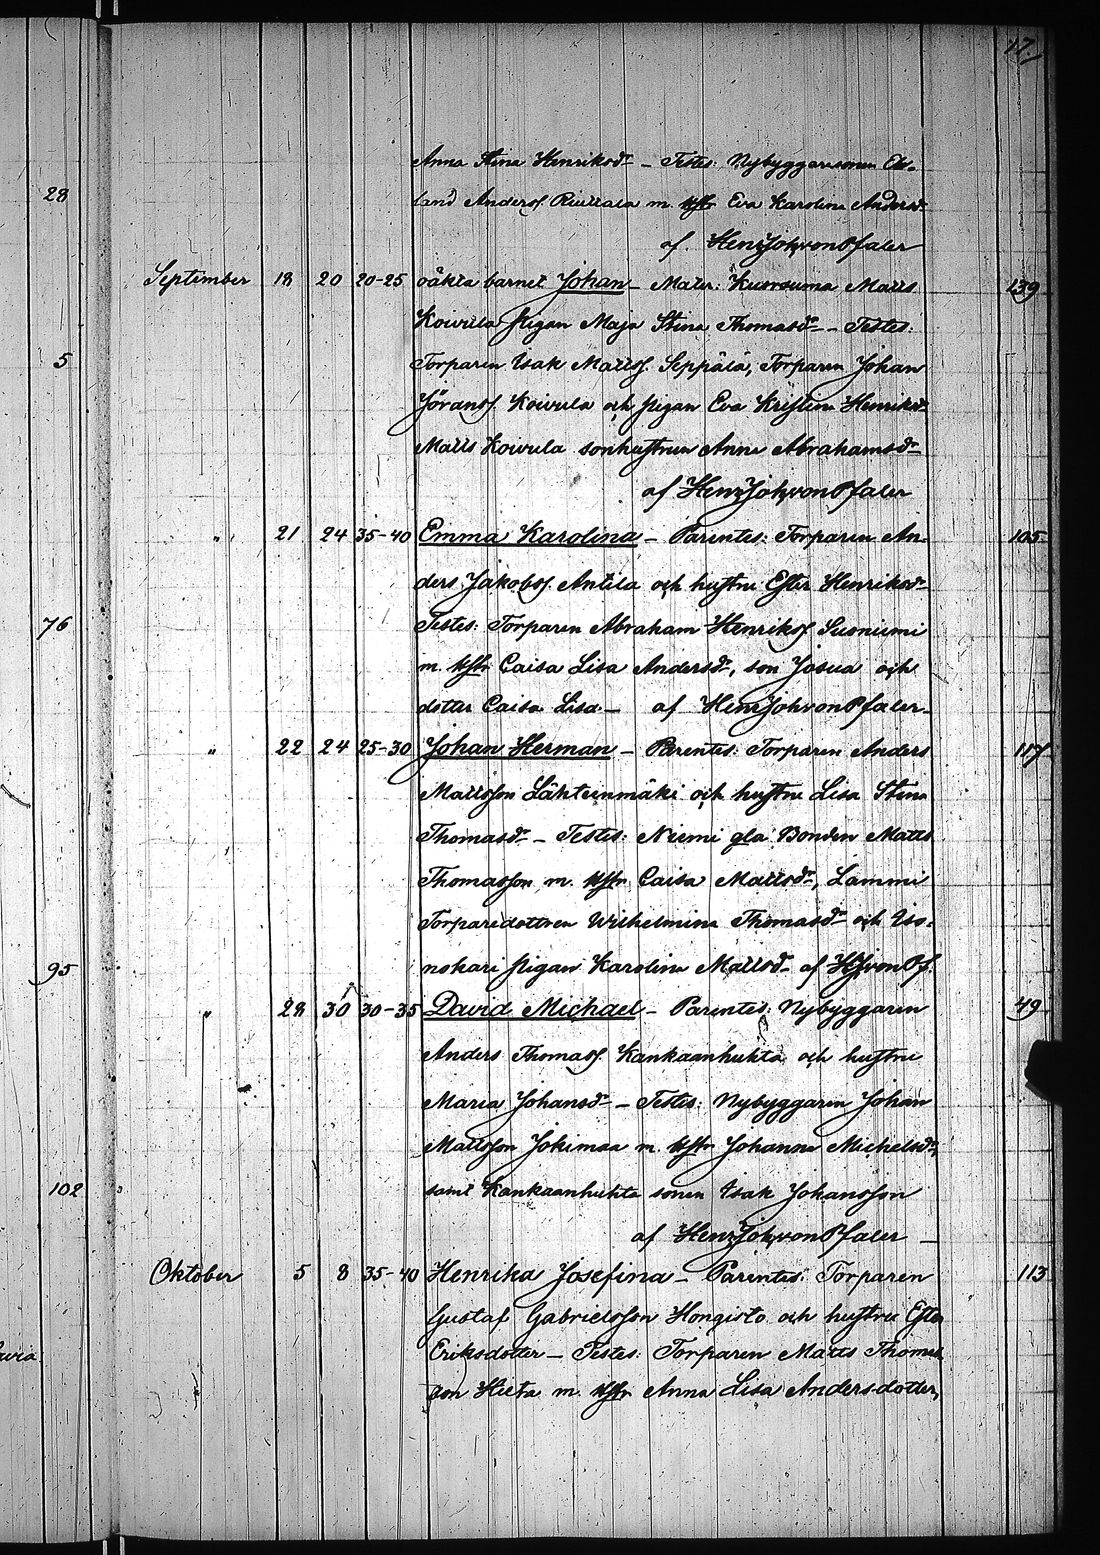 17.
Anna Stina Henriksdr – Testes: Nybyggaresonen
land Anderss. Riuttala m. hstr Eva Karolina Andersdr
28
af. Hen: Joh, von Pfaler
September 18 20 20-25 oäkta barnet Johan – Mater: Kuorsuma Matts 139
Koivula pigan Maja Stina Thomasdr – Testes:
5 Torparen Isak Mattss. Seppälä, Torparen Johan
Jöranss. Koivula och pigan Eva Kristina Henriksdr
Matts Koivula sonhustrun Anna Abrahamsdr
af Hen: Joh, von Pfaler
" 21 24 35-40 Emma Karolina – Parentes: Torparen An- 105
ders Jakobss. Antila och hustru Ester Henriksdr
76 Testes: Torparen Abraham Henrikss. Suoniemi
m. hstr Caisa Lisa Andersdr, son Josua och
dotter Caisa Lisa – af Hen: Joh von Pfaler –
" 22 24 25-30 Johan Herman – Parentes: Torparen Anders 117
Mattsson Lähteinmäki och hustru Lisa Stina
Thomasdr – Testes: Niemi gla Bonden Matts
Thomasson m. hstr Caisa Mattsdr, Lammi
Torparedottren Wilhelmina Thomasdr och Iso-
95 nokari pigan Karolina Mattsdr af HJvonPf.
" 28 30 30-35 David Michael – Parentes: Nybyggaren 49
Anders Thomass. Kankaanhuhta och hustru
Maria Johansdr – Testes: Nybyggaren Johan
Mattsson Jokimaa m. hstr Johanna Michelsdr,
102 samt Kankaanhuhta sonen Isak Johansson
af Hen: Joh, von Pfaler –
Oktober 5 8 35-40 Henrika Josefina – Parentes: Torparen 113
Gustaf Gabrielsson Hongisto och hustru Ester
Eriksdotter – Testes: Torparen Matts Thomas
son Hieta m. hstr Anna Lisa Andersdotter,